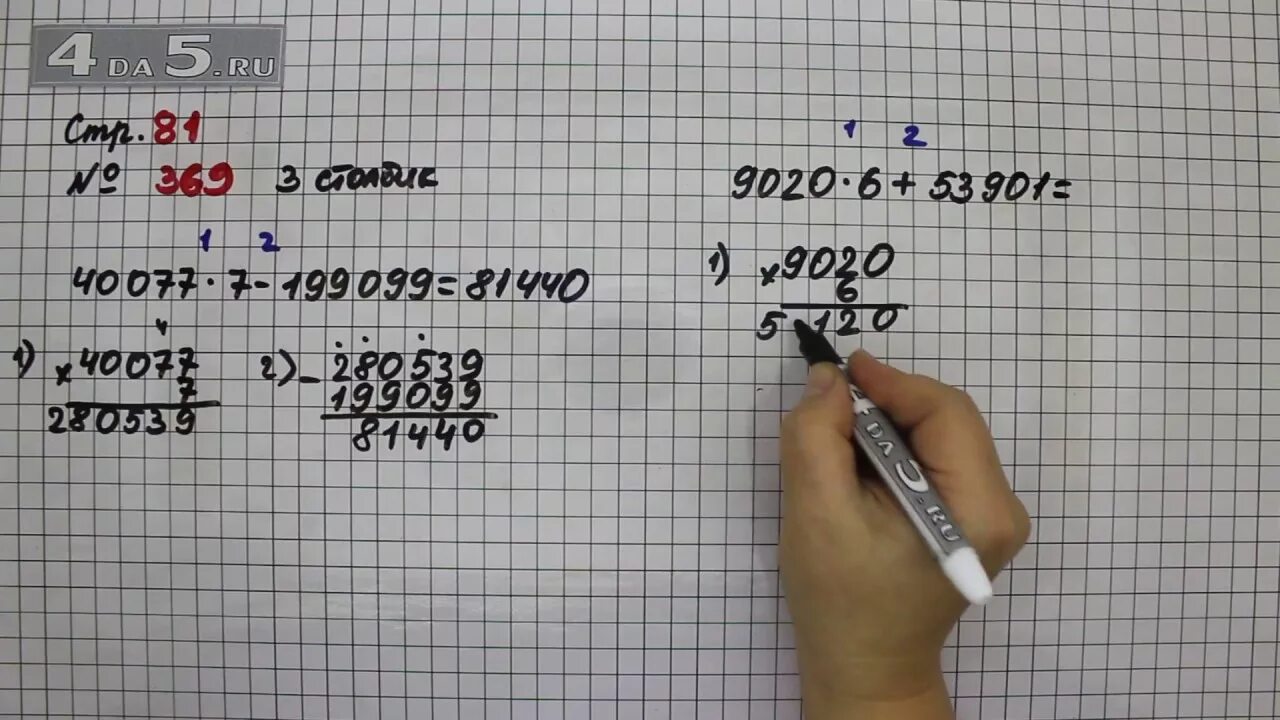 4DA5.RU
Стр. 81
№ 369 3 столбик
1 2
40077·7-199099=81440
4
1) ×40077
7
280539
2) -280539
199099
81440
1 2
9020·6+53901=
1) ×9020
6
5 120
4DA5.RU